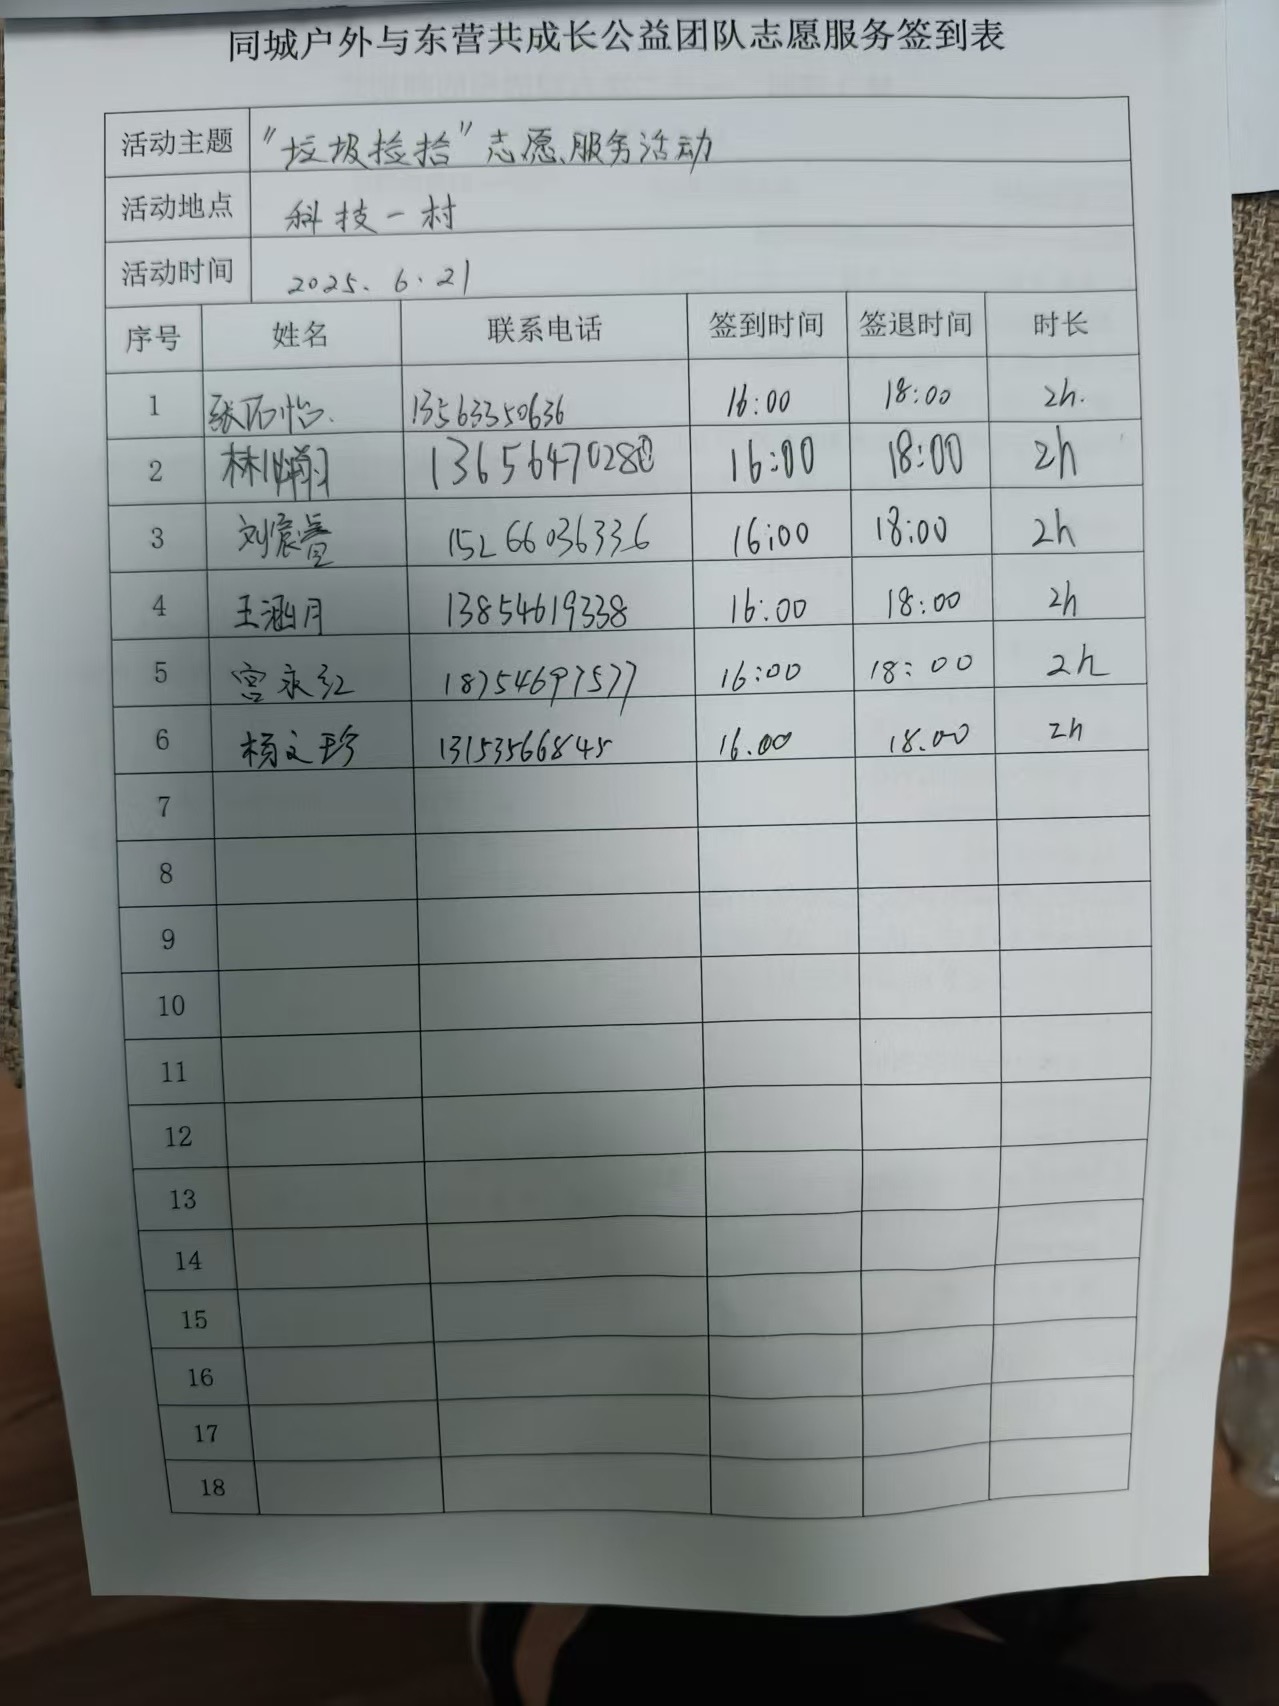 同城户外与东营共成长公益团队志愿服务签到表
活动主题 "垃圾捡拾"志愿服务活动
活动地点 科技一村
活动时间 2025.6.21
序号 姓名 联系电话 签到时间 签退时间 时长
1 张 怡. 13563350636 16:00 18:00 2h.
2 林 翔 1365647028 16:00 18:00 2h
3 刘宸睿 15266036336 16:00 18:00 2h
4 王涵月 13854619338 16:00 18:00 2h
5 宫永红 18754697577 16:00 18:00 2h
6 杨文珍 13153566845 16.00 18.00 2h
7
8
9
10
11
12
13
14
15
16
17
18